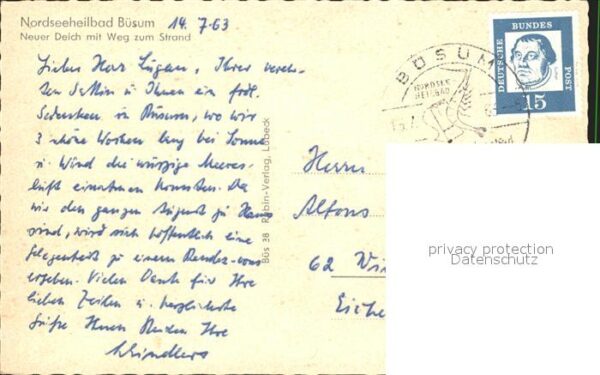 Nordseeheilbad Büsum 14.7.63
Neuer Deich mit Weg zum Strand
Lieber Herr Ihrer verehr-
ten Gattin u. Ihnen ein frdl.
Gedenken in Büsum, wo wir
3 schöne Wochen lang bei Sonne
u. Wind die würzige Meeres-
luft einatmen konnten. Da
wir den ganzen August zu Haus
sind, wird sich hoffentlich eine
Gelegenheit zu einem Rendez-vous
ergeben. Vielen Dank für Ihre
lieben Zeilen u. herzlichste
Grüße Ihnen Beiden Ihre
Schindlers
Büs 38 Rubin-Verlag, Lübeck
DEUTSCHE BUNDES POST
15
BÜSUM
NORDSEE
HEILBAD
Herrn
Alfons
62 Wi
Eiche
privacy protection
Datenschutz